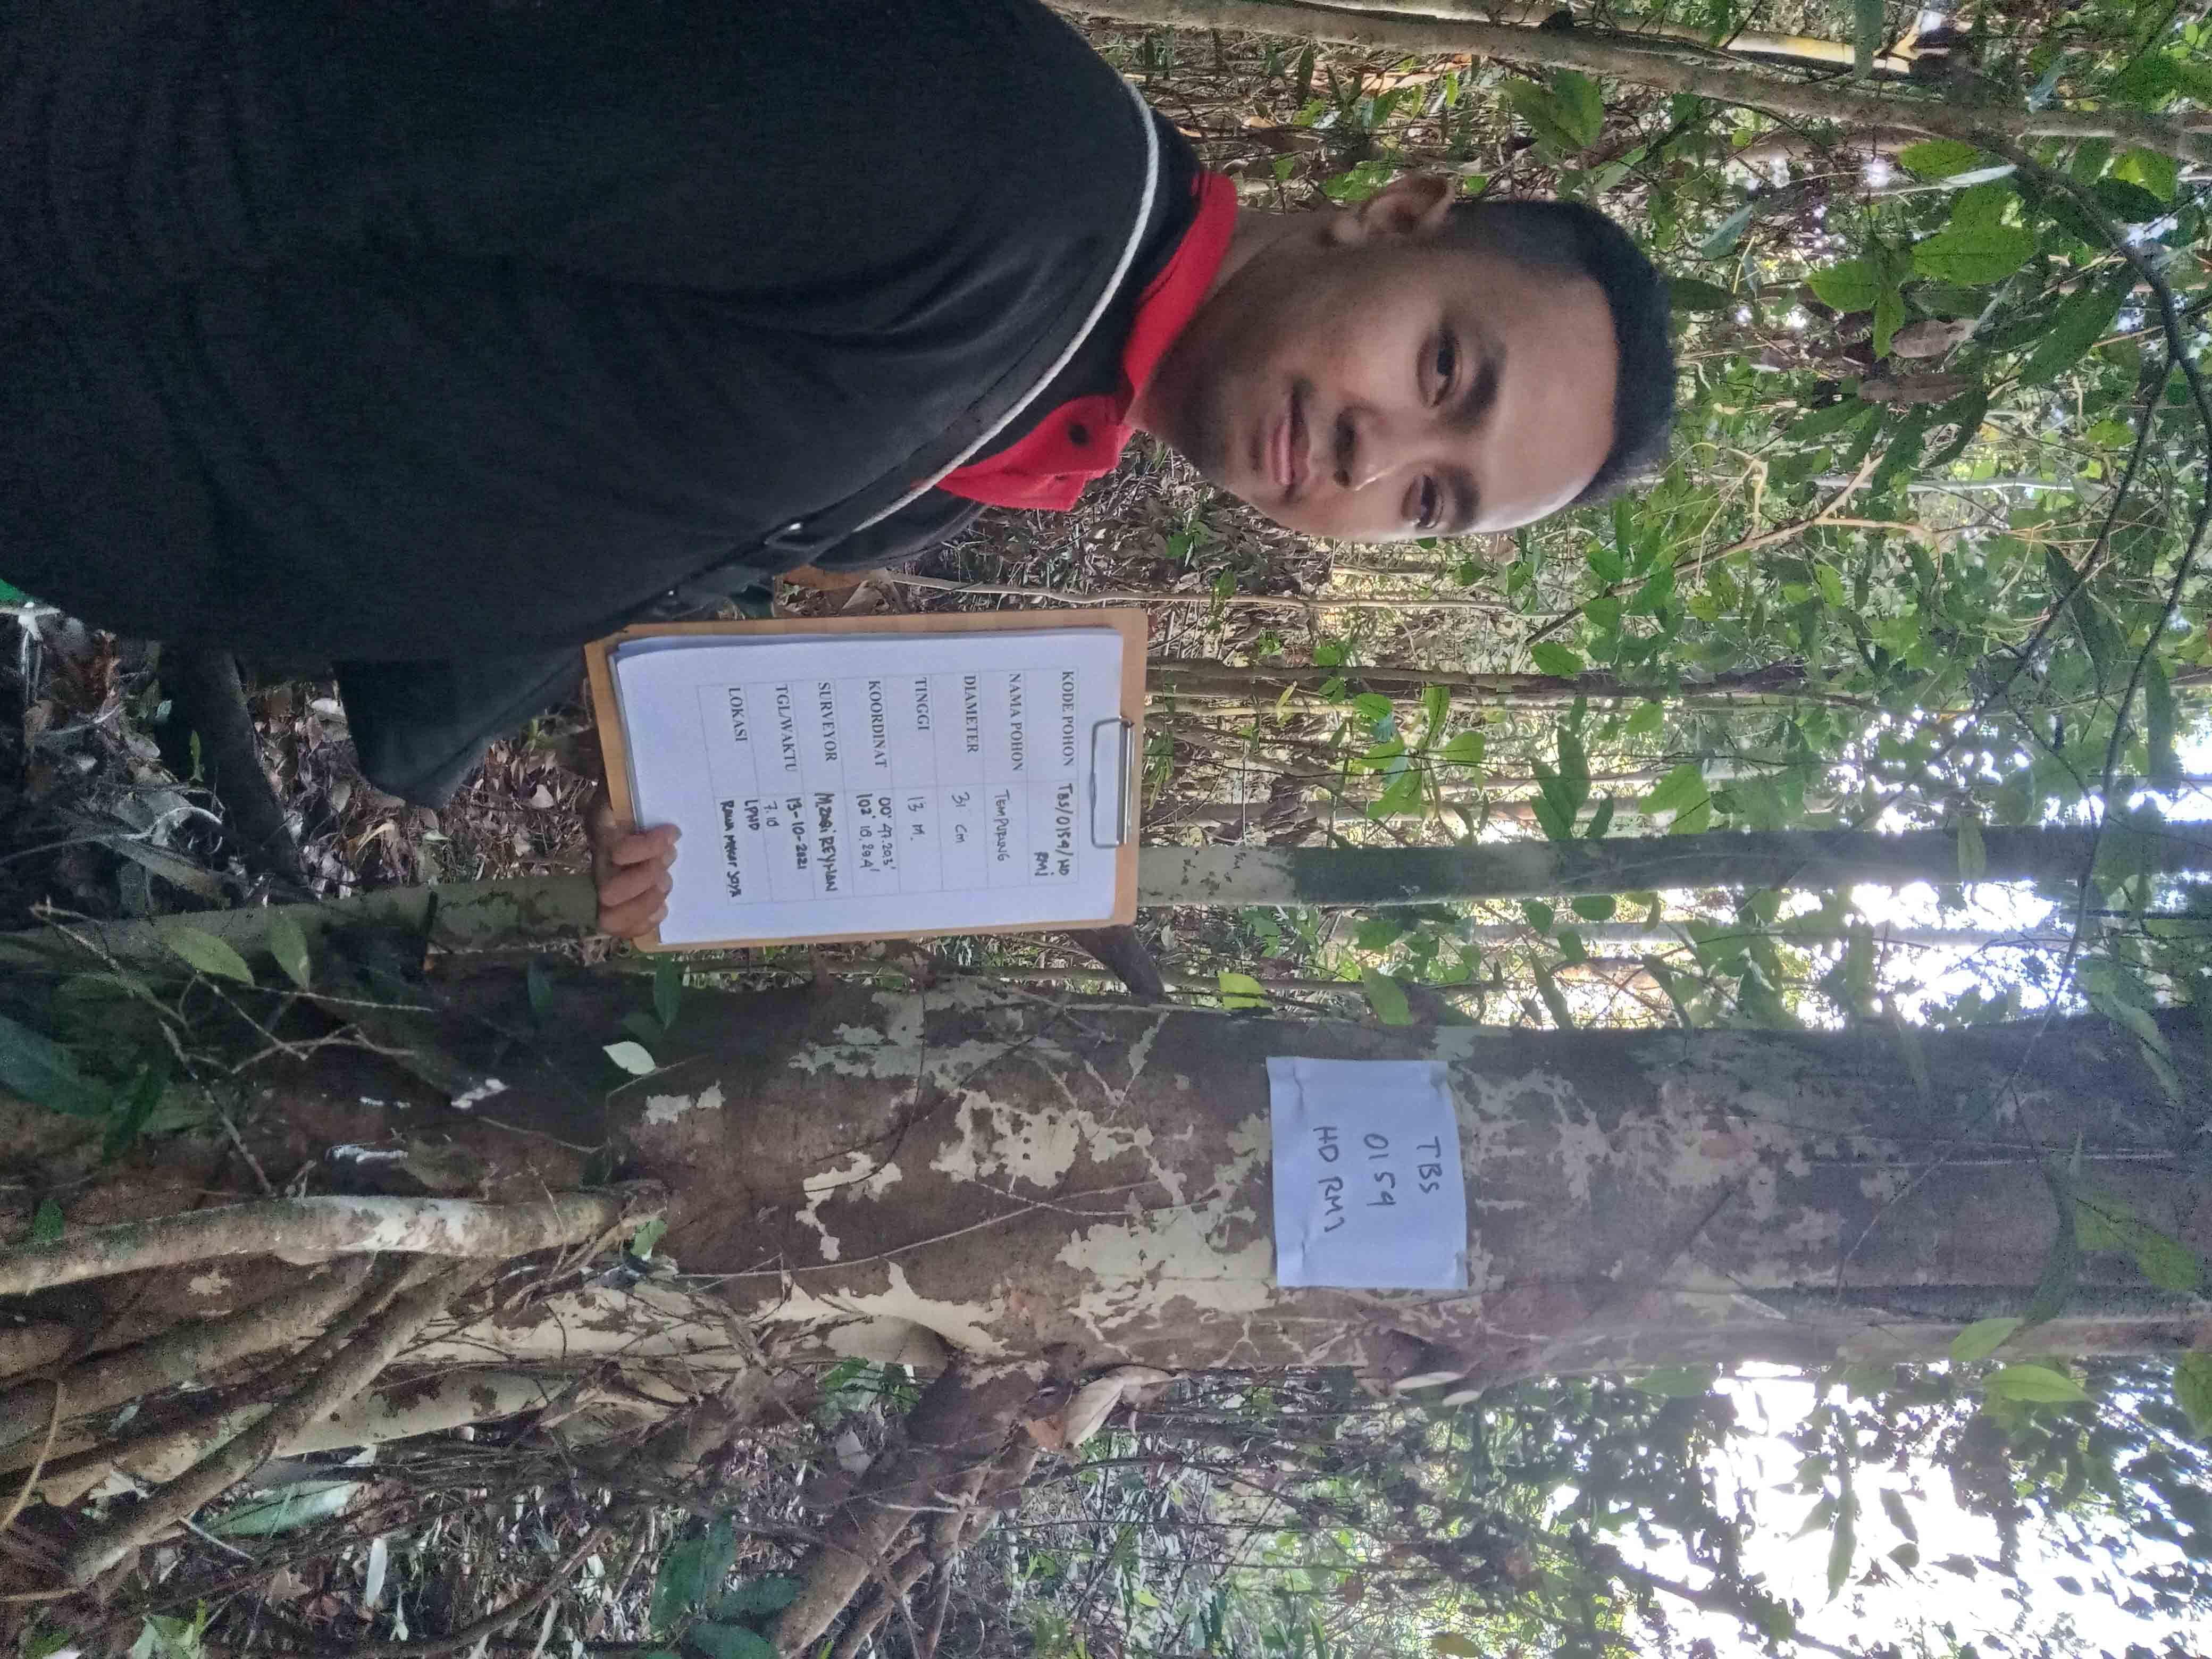 KODE POHON TBS/0159/HD
RMJ
NAMA POHON TEMPURUNG
DIAMETER 31 cm
TINGGI 13 M.
KOORDINAT 00° 47.293'
102° 10.294'
SURVEYOR M.ZOGI REYHAN
TGL/WAKTU 13-10-2021
7.10
LOKASI LPHD
RAWA MEKAR JAYA
TBS
0159
HD RMJ